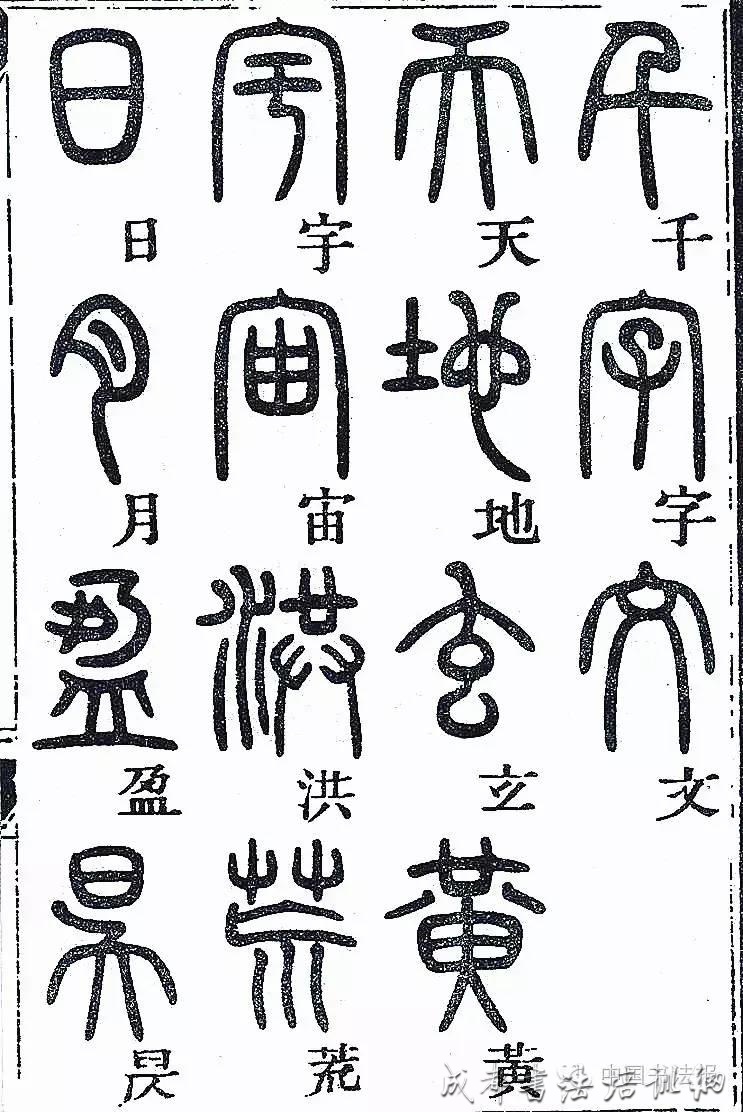 千字文
天地玄黃
宇宙洪荒
日月盈昃
中国书法报
成都书法培训机构